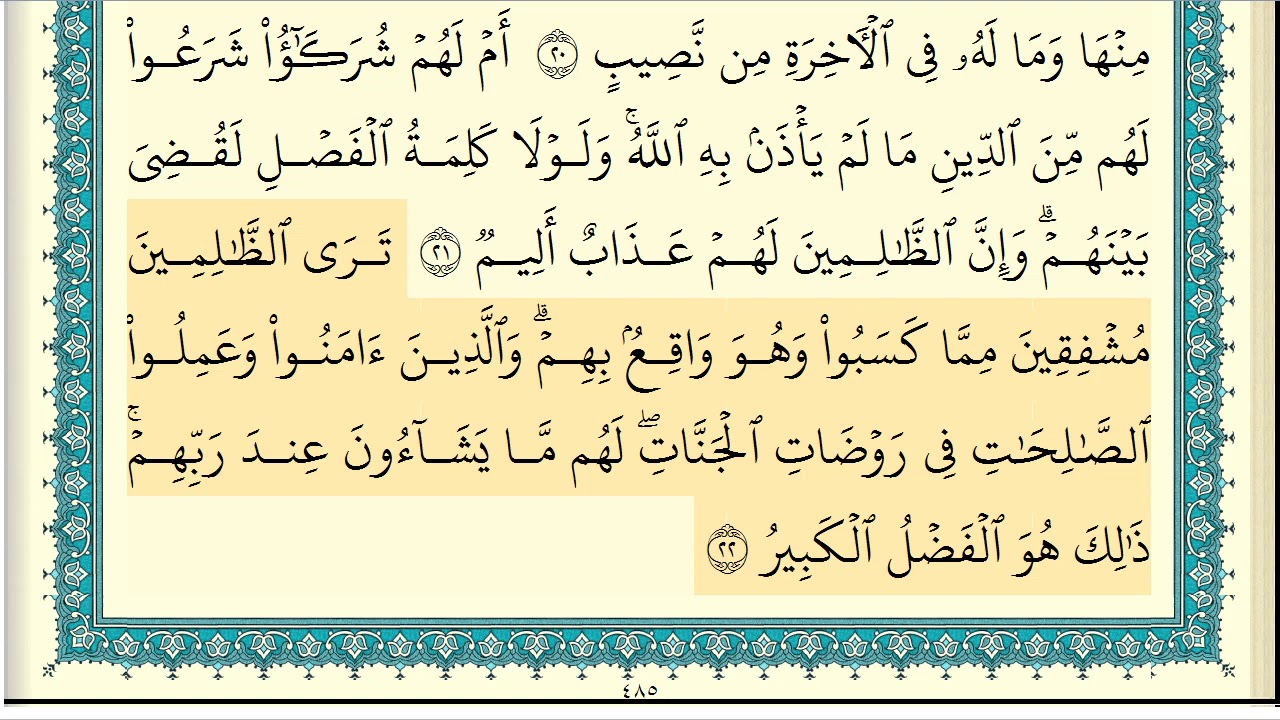 مِنْهَا وَمَا لَهُۥ فِى ٱلْـَٔاخِرَةِ مِن نَّصِيبٍ ٢٠ أَمْ لَهُمْ شُرَكَـٰٓؤُا۟ شَرَعُوا۟
لَهُم مِّنَ ٱلدِّينِ مَا لَمْ يَأْذَنۢ بِهِ ٱللَّهُ ۚ وَلَوْلَا كَلِمَةُ ٱلْفَصْلِ لَقُضِىَ
بَيْنَهُمْ ۗ وَإِنَّ ٱلظَّـٰلِمِينَ لَهُمْ عَذَابٌ أَلِيمٌ ٢١ تَرَى ٱلظَّـٰلِمِينَ
مُشْفِقِينَ مِمَّا كَسَبُوا۟ وَهُوَ وَاقِعٌۢ بِهِمْ ۗ وَٱلَّذِينَ ءَامَنُوا۟ وَعَمِلُوا۟
ٱلصَّـٰلِحَـٰتِ فِى رَوْضَاتِ ٱلْجَنَّاتِ ۖ لَهُم مَّا يَشَآءُونَ عِندَ رَبِّهِمْ ۚ
ذَٰلِكَ هُوَ ٱلْفَضْلُ ٱلْكَبِيرُ ٢٢
٤٨٥